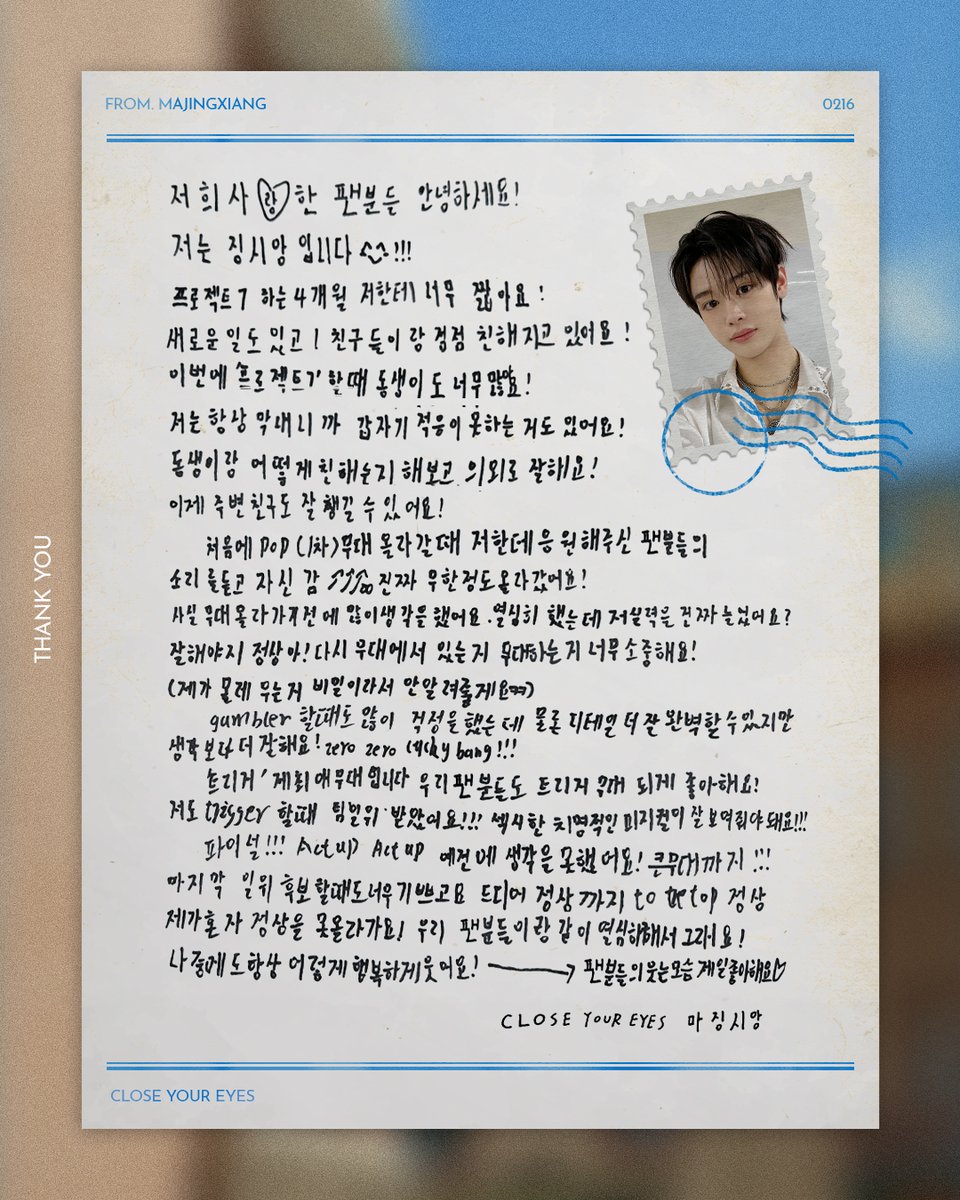 FROM. MAJINGXIANG
0216
저희 사랑한 팬분들 안녕하세요!
저는 징시앙 입니다 ^^!!!
프로젝트7 하는 4개월 저한테 너무 짧아요!
새로운 일도 있고 | 친구들이랑 점점 친해지고 있어요!
이번에 프로젝트7 할때 동생이도 너무 많았요!
저는 항상 막내니까 갑자기 적응이 못하는 거도 있어요!
동생이랑 어떻게 친해는지 해보고 의외로 잘해요!
이제 주변 친구도 잘 챙길 수 있어요!
처음에 POP (1차)무대 올라갈때 저한데 응원해주신 팬분들의
소리를 듣고 자신감 진짜 무한정도 올라갔어요!
사실 무대 올라가기 전에 많이 생각을 했어요. 열심히 했는데 저 실력을 진짜 늘었어요?
잘해야지 정상아! 다시 무대에서 있는지 무대하는거 너무 소중해요!
(제가 몰레 우는거 비밀이라서 안알려줄게요)
gambler 할때도 많이 걱정을 했는데 물론 디테일 더 잘 완벽할 수 있지만
생각보다 더 잘해요! zero zero lucky bang!!!
트리거! 제최애무대 입니다 우리 팬분들도 트리거 무대 되게 좋아해요!
저도 trigger 할때 팀일위 받았어요!!! 섹시한 치명적인 피지컬이 잘 보여줘야 돼요!!!
파이널!!! Act up Act up 예전에 생각을 못했어요! 큰무대까지!!!
마지막 일위 후보 할때도 너무 기쁘고요 드디어 정상까지 to the top 정상
제가 혼자 정상을 못올라가요! 우리 팬분들이랑 같이 열심해해서 그래요!
나중에도 항상 이렇게 행복하게 웃어요! → 팬분들의 웃는모습 제일좋아해요♡
CLOSE YOUR EYES 마징시앙
THANK YOU
CLOSE YOUR EYES